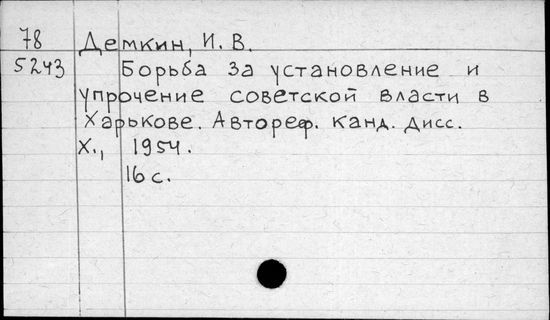 78 Демкин, И. В.
5243 Борьба за установление и
упрочение советской власти в
Харькове. Автореф. канд. дисс.
Х., 1954.
16 с.